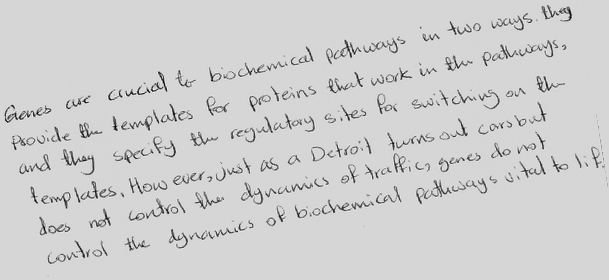 Genes are crucial to biochemical pathways in two ways. they
provide the templates for proteins that work in the pathways,
and they specify the regulatory sites for switching on the
templates. However, just as a Detroit turns out cars but
does not control the dynamics of traffic, genes do not
control the dynamics of biochemical pathways vital to lif